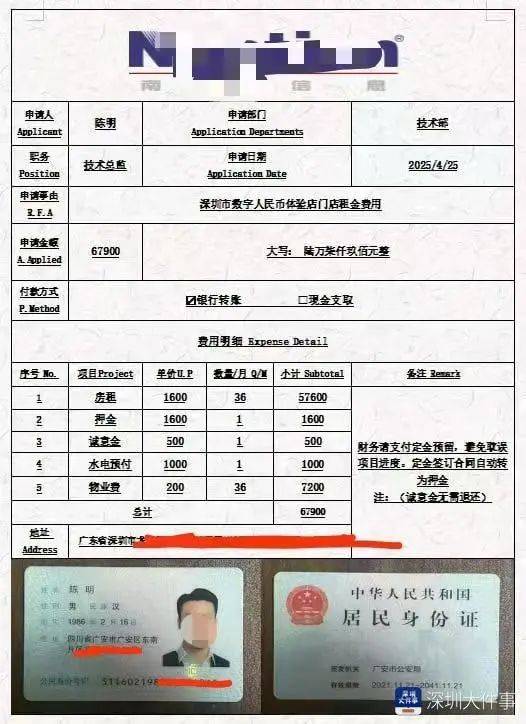 N   tion®
南 信息
申请人 陈明 申请部门 技术部
Applicant Application Departments
职务 技术总监 申请日期 2025/4/25
Position Application Date
申请事由 深圳市数字人民币体验店门店租金费用
R.F.A
申请金额 67900 大写: 陆万柒仟玖佰元整
A.Applied
付款方式 ☑银行转账 □现金支取
P.Method
费用明细 Expense Detail
序号 No. 项目Project 单价U.P 数量/月 Q/M 小计 Subtotal 备注 Remark
1 房租 1600 36 57600
2 押金 1600 1 1600
3 诚意金 500 1 500
4 水电预付 1000 1 1000
5 物业费 200 36 7200
总计 67900
财务请支付定金预留,避免耽误
项目进度。定金签订合同自动转
为押金
注:(诚意金无需退还)
地址 广东省深圳市
Address
姓名 陈明
性别 男 民族 汉
出生 1986年2月16日
住址 四川省广安市广安区东南
公民身份号码 511602198
中华人民共和国
居民身份证
签发机关 广安市公安局
有效期限 2021.11.21-2041.11.21
深圳大件事
深圳大件事